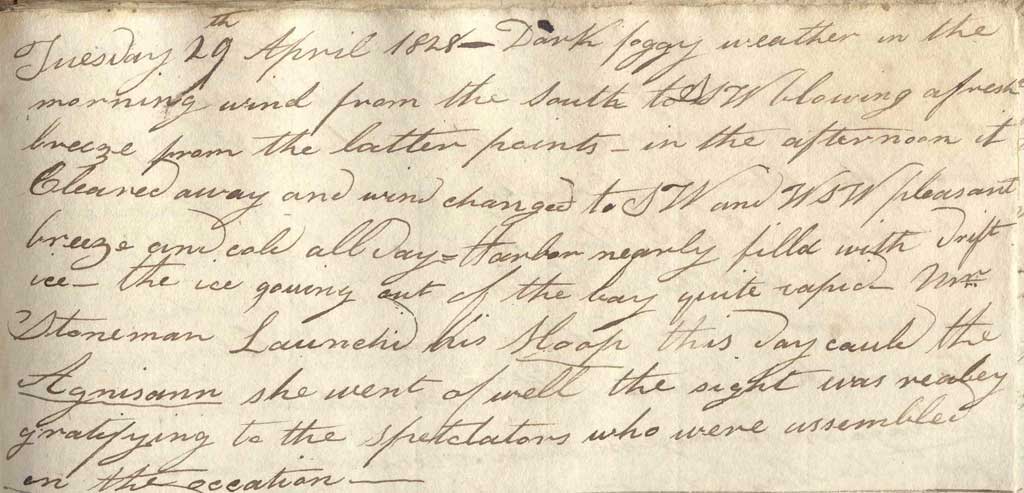 Tuesday 29th April 1828 – Dark foggy weather in the
morning wind from the South to SSW blowing a fresh
breeze from the latter points – in the afternoon it
Cleared away and wind changed to SW and WSW pleasant
breeze and cold all day = Harbor nearly filld with drift
ice – the ice gowing out of the bay quite rapid – Mr
Stoneman Launchd his Sloop this day cauld the
Agnisann she went of well the sight was realey
gratifying to the spectators who were assembled
on the occation –